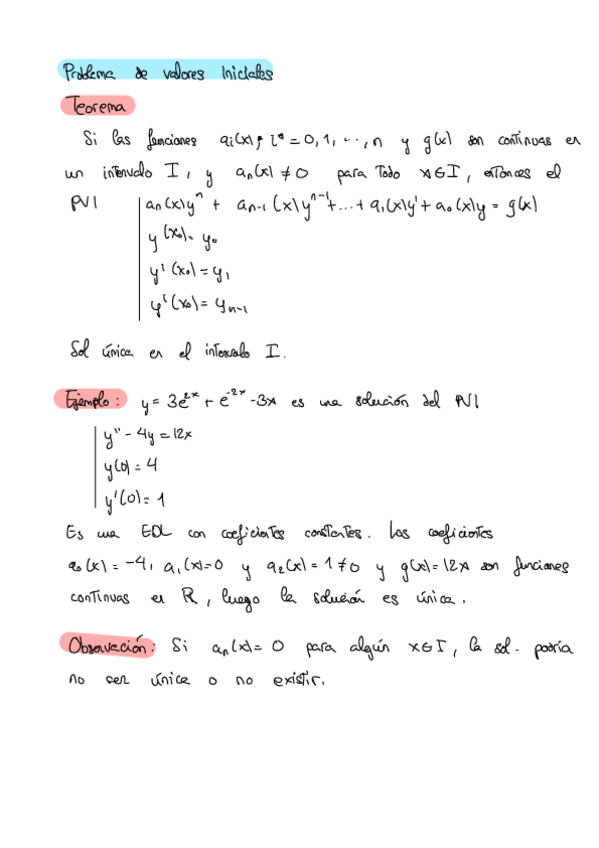 Problema de valores iniciales
Teorema
Si las funciones aᵢ(x), i = 0, 1, ..., n y g(x) son continuas en
un intervalo I, y aₙ(x) ≠ 0 para todo x∈I, entonces el
PVI aₙ(x)yⁿ + aₙ₋₁(x)yⁿ⁻¹+...+ a₁(x)y' + a₀(x)y = g(x)
y(x₀) = y₀
y'(x₀) = y₁
y'(x₀) = yₙ₋₁
Sol única en el intervalo I.
Ejemplo: y = 3e²ˣ + e⁻²ˣ - 3x es una solución del PVI
y'' - 4y = 12x
y(0) = 4
y'(0) = 1
Es una EDL con coeficientes constantes. Los coeficientes
a₀(x) = -4, a₁(x)=0 y a₂(x) = 1 ≠ 0 y g(x) = 12x son funciones
continuas en R, luego la solución es única.
Observación: Si aₙ(x) = 0 para algún x∈I, la sol. podría
no ser única o no existir.